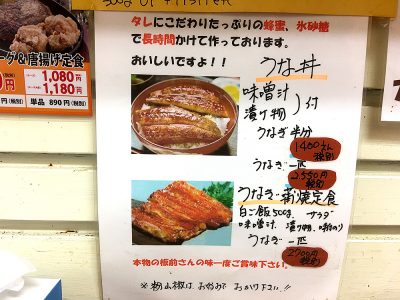 タレにこだわりたっぷりの蜂蜜、氷砂糖
で長時間かけて作っております。
おいしいですよ！！
うな丼
味噌汁
漬け物 ）付
うなぎ半分
1400えん
税別
うなぎ一匹
2,550円
税別
うなぎ蒲焼定食
白ご飯500g サラダ
味噌汁 漬け物、味のり
うなぎ一匹
2700円
税別
本物の板前さんの味一度ご賞味下さい。
※ 粉山椒は、おもとめ おかけ下さい！
グ＆唐揚げ定食
1,080円
1,180円
単品 890円(税別)